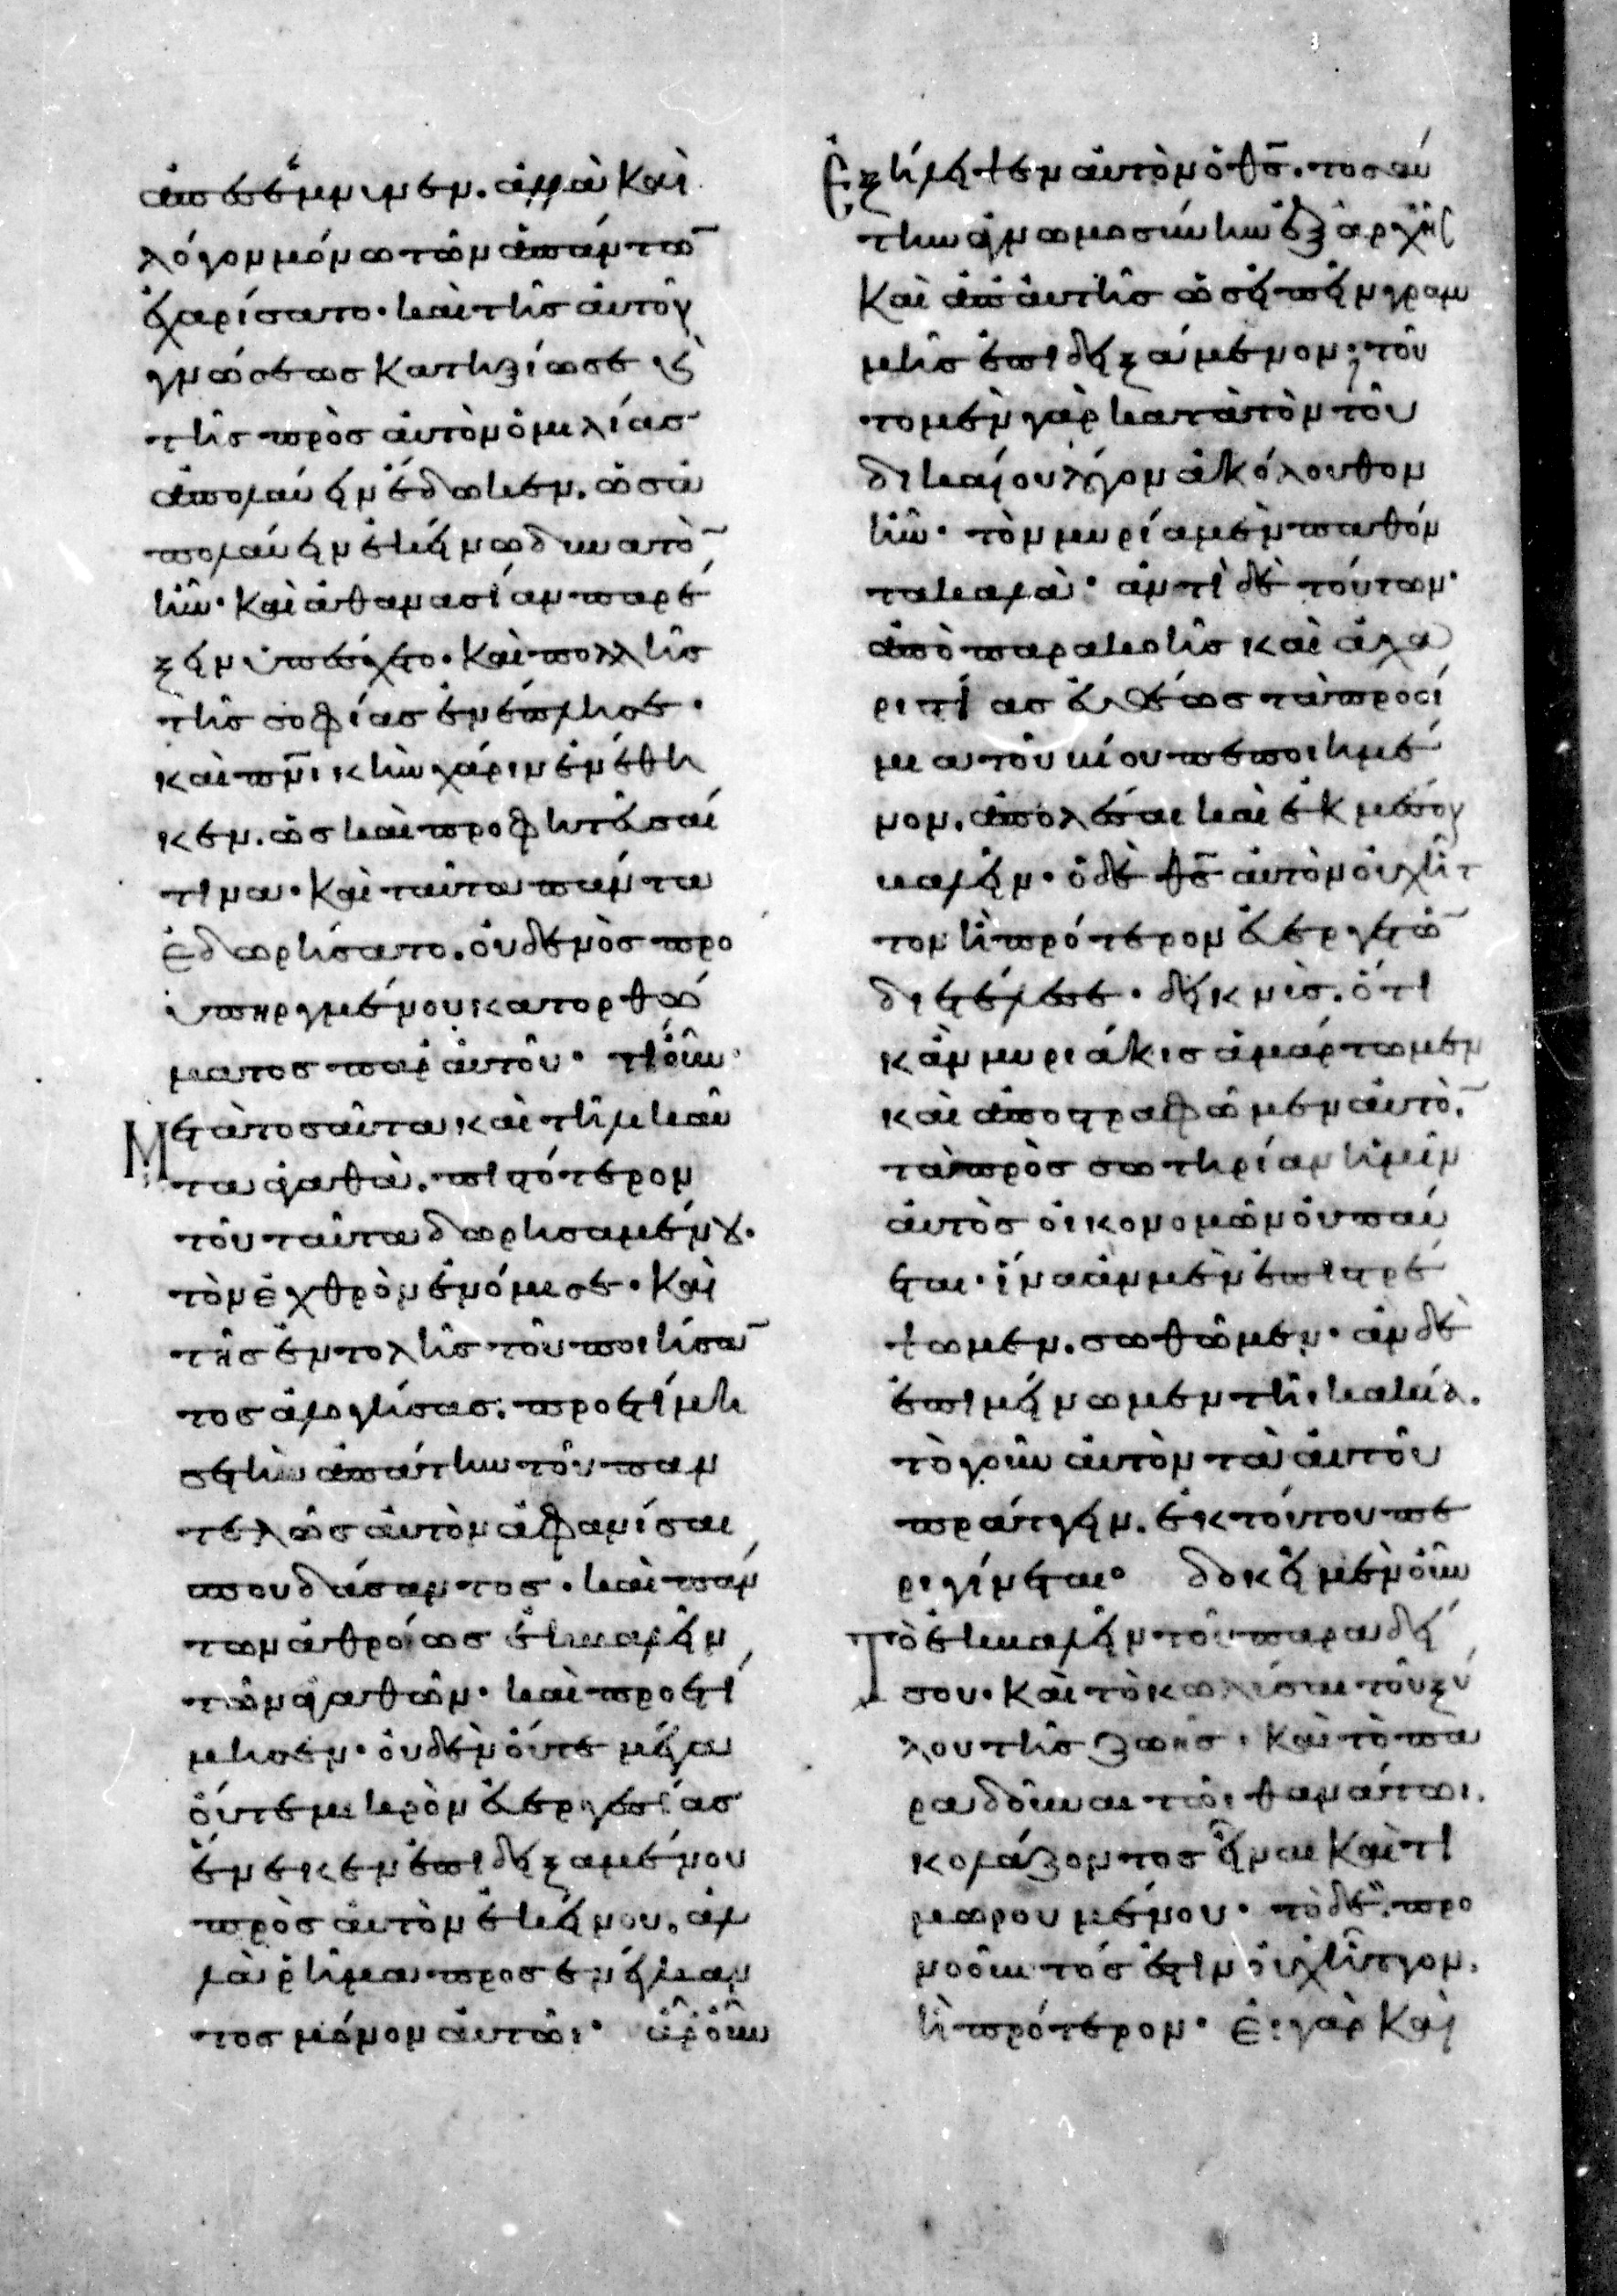 ἀπεγέννησεν. ἀλλὰ καὶ
λόγον μόνω τῶν ἁπάντω̅
ἐχαρίσατο. καὶ τῆς αὐτοῦ
γνώσεως κατηξίωσε καὶ
τῆς πρὸς αὐτὸν ὁμιλίας
ἀπολαύειν ἔδωκεν. ὡς ἀ
πολαύειν ἐκείνω δυνατὸ̅
ἦν. καὶ ἀθανασίαν παρέ
ξειν ὑπέσχετο. καὶ πολλῆς
τῆς σοφίας ἐνέπλησε.
καὶ πν̅ικὴν χάριν ἐνέθη
κεν. ὡς καὶ προφητεῦσαί
τινα. καὶ ταῦτα πάντα
ἐδωρήσατο. οὐδενὸς προ
ϋπηργμένου κατορθώ
ματος παρ αὐτοῦ. τί οὖν
Μετὰ τοσαῦτα καὶ τηλικαῦ
τα ἀγαθὰ. πιστότερον
τοῦ ταῦτα δωρησαμένου.
τὸν ἐχθρὸν ἐνόμισε. καὶ
τῆς ἐντολῆς τοῦ ποιήσα̅
τος ἀλογήσας. προετίμη
σε τὴν ἀπάτην τοῦ παν
τελῶς αὐτὸν ἀφανίσαι
σπουδάσαντος. καὶ πάν
των ἀθρόως ἐκβαλεῖν
τῶν ἀγαθῶν. καὶ προετί
μησεν. οὐδὲν οὔτε μέγα
οὔτε μικρὸν εὐεργεσίας
ἕνεκεν ἐπιδειξαμένου
πρὸς αὐτὸν ἐκείνου. ἀλ
λὰ ῥῆμα προσενέγκαν
τος μόνον αὐτῶι. ἆρ οὖν
Ἐξήλειψεν αὐτὸν ὁ θς̅. τοσαύ
την ἀγνωμοσύνην ἐξ ἀρχῆς
καὶ ἀπ αὐτῆς ὡς εἰπεῖν γραμ
μῆς ἐπιδειξάμενον; τοῦ
το μὲν γὰρ κατὰ τὸν τοῦ
δικαίου λόγον ἀκόλουθον
ἦν. τὸν μυρία μὲν παθόν
τα καλὰ. ἀντὶ δὲ τούτων.
ἀπὸ παρακοῆς καὶ ἀχα
ριστίας εὐθέως τὰ προοί
μια τοῦ βίου πεποιημέ
νον. ἀπολέσαι καὶ ἐκ μέσου
βαλεῖν. ὁ δὲ θς̅ αὐτὸν οὐχ ἧτ
τον ἢ πρότερον εὐεργετῶ̅
διετέλεσε. δεικνὺς. ὅτι
κἂν μυριάκις ἁμάρτωμεν
καὶ ἀποστραφῶμεν αὐτὸ̅.
τὰ πρὸς σωτηρίαν ἡμῖν
αὐτὸς οἰκονομῶν οὐ παύ
εται. ἵνα ἂν μὲν ἐπιστρέ
ψωμεν. σωθῶμεν. ἂν δὲ
ἐπιμείνωμεν τῆι κακία.
τὸ γοῦν αὐτὸν τὰ αὐτοῦ
πράττειν. ἐκ τούτου πε
ριγίνεται. δοκεῖ μὲν οὖν
Τὸ ἐκβαλεῖν τοῦ παραδεί
σου. καὶ τὸ κωλύσαι τοῦ ξύ
λου τῆς ζωῆς. καὶ τὸ πα
ραδοῦναι τῶι θανάτωι.
κολάζοντος εἶναι καὶ τι
μωρουμένου. τὸ δὲ. προ
νοοῦντός ἐστιν οὐχ ἧττον.
ἢ πρότερον. εἰ γὰρ καὶ